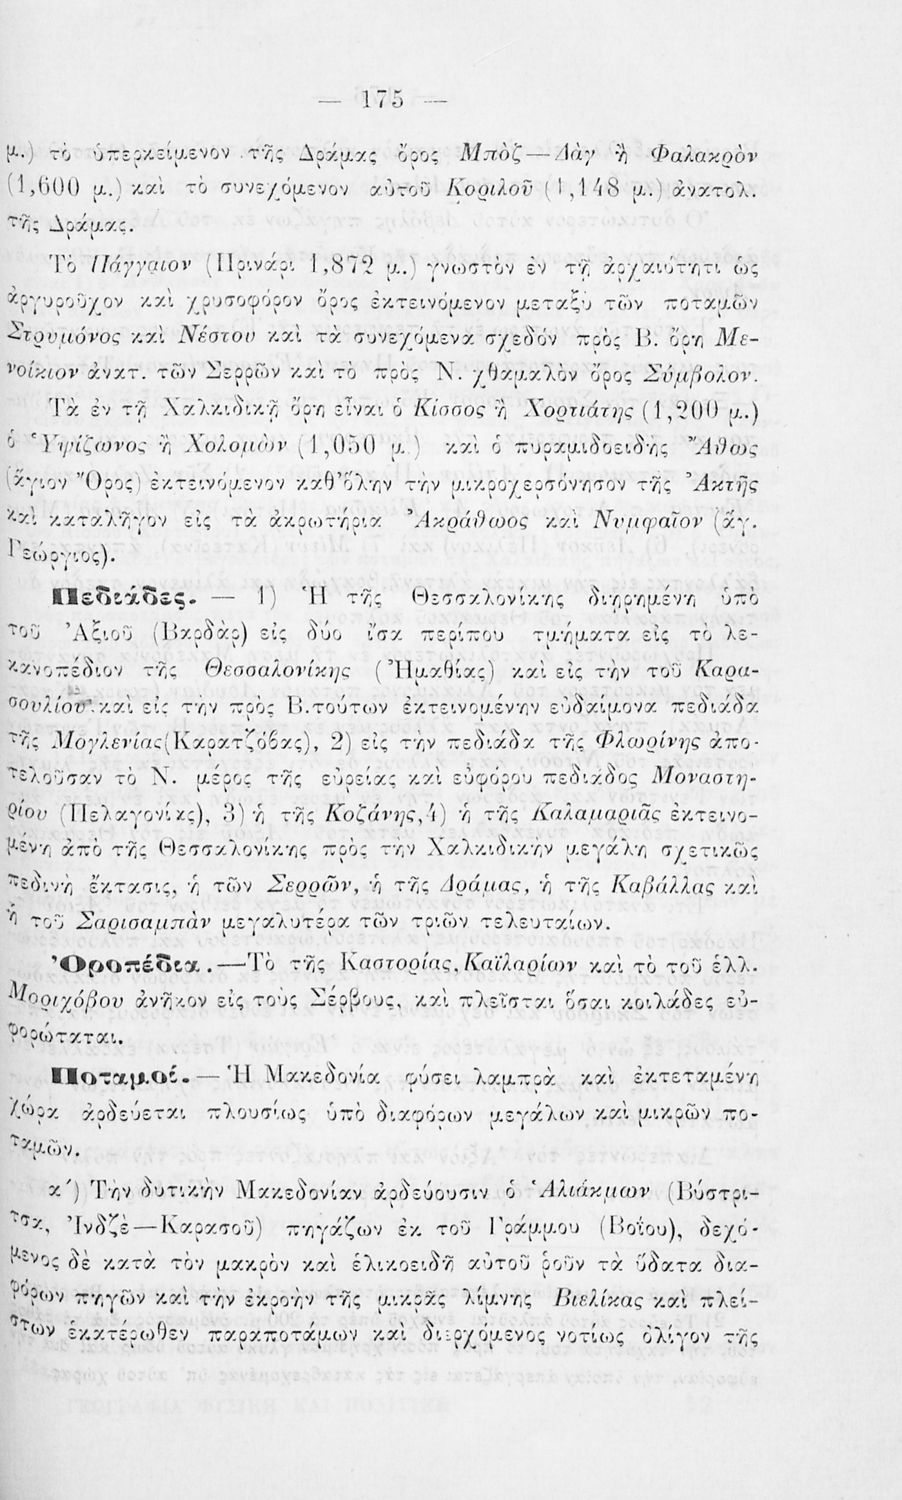 — 175 —
μ.) τὸ ὑπερκείμενον τῆς Δράμας ὄρος Μπὸζ—Δὰγ ἢ Φαλακρὸν
(1,600 μ.) καὶ τὸ συνεχόμενον αὐτοῦ Κοριλοῦ (1,148 μ.) ἀνατολ.
τῆς Δράμας.
Τὸ Πάγγαιον (Πρινάρι 1,872 μ.) γνωστὸν ἐν τῇ ἀρχαιότητι ὡς
ἀργυροῦχον καὶ χρυσοφόρον ὄρος ἐκτεινόμενον μεταξὺ τῶν ποταμῶν
Στρυμόνος καὶ Νέστου καὶ τὰ συνεχόμενα σχεδὸν πρὸς Β. ὄρη Με-
νοίκιον ἀνατ. τῶν Σερρῶν καὶ τὸ πρὸς Ν. χθαμαλὸν ὄρος Σύμβολον.
Τὰ ἐν τῇ Χαλκιδικῇ ὄρη εἶναι ὁ Κίσσος ἢ Χορτιάτης (1,200 μ.)
ὁ Ὑψίζωνος ἢ Χολομὼν (1,050 μ.) καὶ ὁ πυραμιδοειδὴς Ἄθως
(ἅγιον Ὄρος) ἐκτεινόμενον καθ' ὅλην τὴν μικροχερσόνησον τῆς Ἀκτῆς
καὶ καταλῆγον εἰς τὰ ἀκρωτήρια Ἀκράθωος καὶ Νυμφαῖον (ἅγ.
Γεώργιος).
Πεδιάδες. — 1) Ἡ τῆς Θεσσαλονίκης διῃρημένη ὑπὸ
τοῦ Ἀξιοῦ (Βαρδὰρ) εἰς δύο ἴσα περίπου τμήματα εἰς τὸ λε-
κανοπέδιον τῆς Θεσσαλονίκης (Ἠμαθίας) καὶ εἰς τὴν τοῦ Καρα-
σουλίου καὶ εἰς τὴν πρὸς Β. τούτων ἐκτεινομένην εὐδαίμονα πεδιάδα
τῆς Μογλενίας (Καρατζόβας), 2) εἰς τὴν πεδιάδα τῆς Φλωρίνης ἀπο-
τελοῦσαν τὸ Ν. μέρος τῆς εὐρείας καὶ εὐφόρου πεδιάδος Μοναστη-
ρίου (Πελαγονίας), 3) ἡ τῆς Κοζάνης, 4) ἡ τῆς Καλαμαριᾶς ἐκτεινο-
μένη ἀπὸ τῆς Θεσσαλονίκης πρὸς τὴν Χαλκιδικὴν μεγάλη σχετικῶς
πεδινὴ ἔκτασις, ἡ τῶν Σερρῶν, ἡ τῆς Δράμας, ἡ τῆς Καβάλλας καὶ
ἡ τοῦ Σαρισαμπὰν μεγαλυτέρα τῶν τριῶν τελευταίων.
Ὀροπέδια.—Τὸ τῆς Καστορίας, Καϊλαρίων καὶ τὸ τοῦ ἑλλ.
Μοριχόβου ἀνῆκον εἰς τοὺς Σέρβους, καὶ πλεῖσται ὅσαι κοιλάδες εὐ-
φορώταται.
Ποταμοί.— Ἡ Μακεδονία φύσει λαμπρὰ καὶ ἐκτεταμένη
χώρα ἀρδεύεται πλουσίως ὑπὸ διαφόρων μεγάλων καὶ μικρῶν πο-
ταμῶν.
α΄) Τὴν δυτικὴν Μακεδονίαν ἀρδεύουσιν ὁ Ἁλιάκμων (Βύστρι-
τσα, Ἰνδζὲ—Καρασοῦ) πηγάζων ἐκ τοῦ Γράμμου (Βοΐου), δεχό-
μενος δὲ κατὰ τὸν μακρὸν καὶ ἑλικοειδῆ αὐτοῦ ῥοῦν τὰ ὕδατα δια-
φόρων πηγῶν καὶ τὴν ἐκροὴν τῆς μικρᾶς λίμνης Βιελίκας καὶ πλεί-
στων ἑκατέρωθεν παραποτάμων καὶ διερχόμενος νοτίως ὀλίγον τῆς